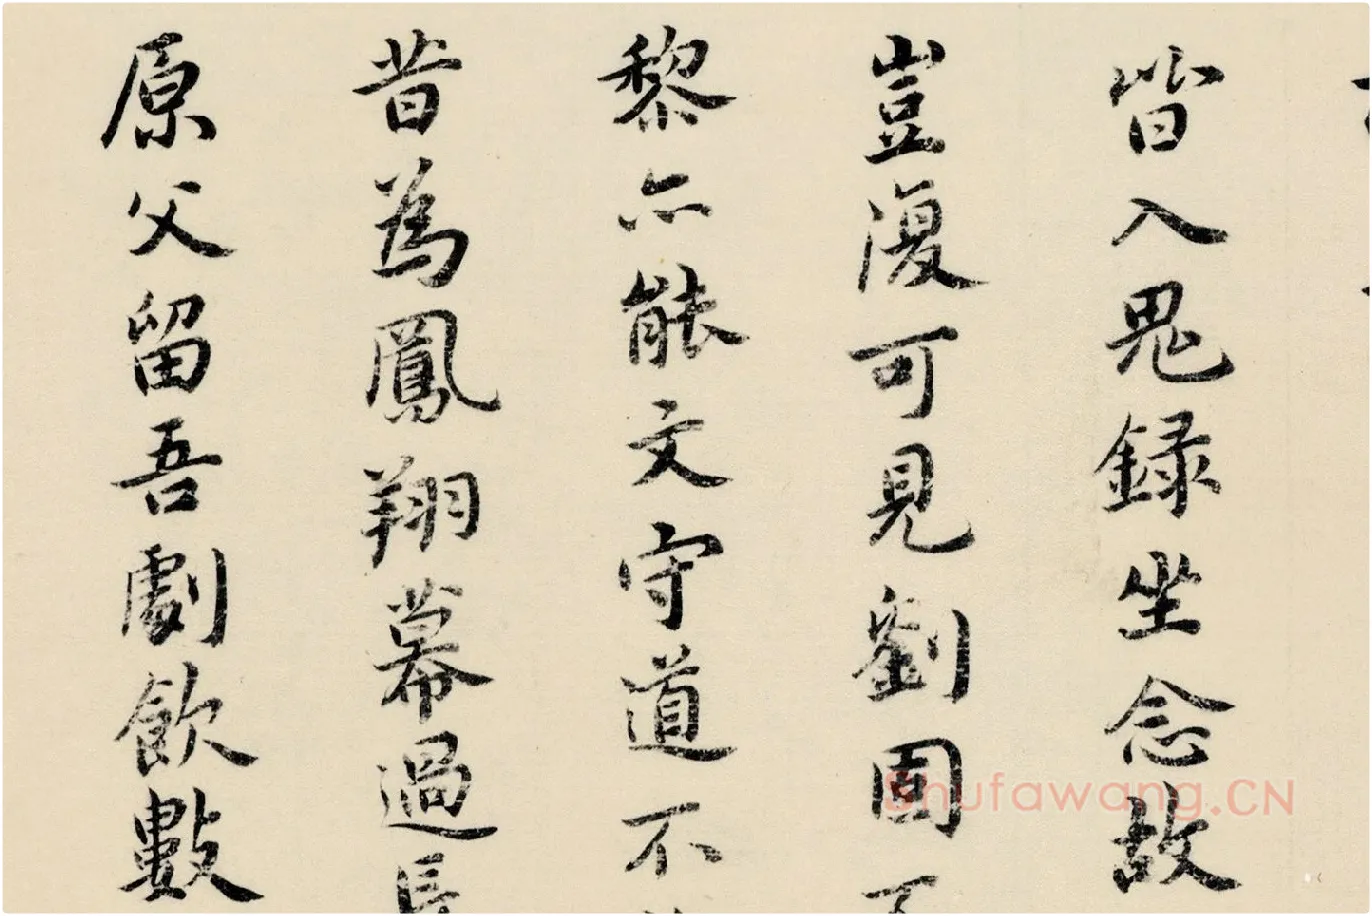 皆入鬼録坐念故
豈復可見劉固
黎亦能文守道不
昔為鳳翔幕過長
原父留吾劇飲數
Shufawang.CN